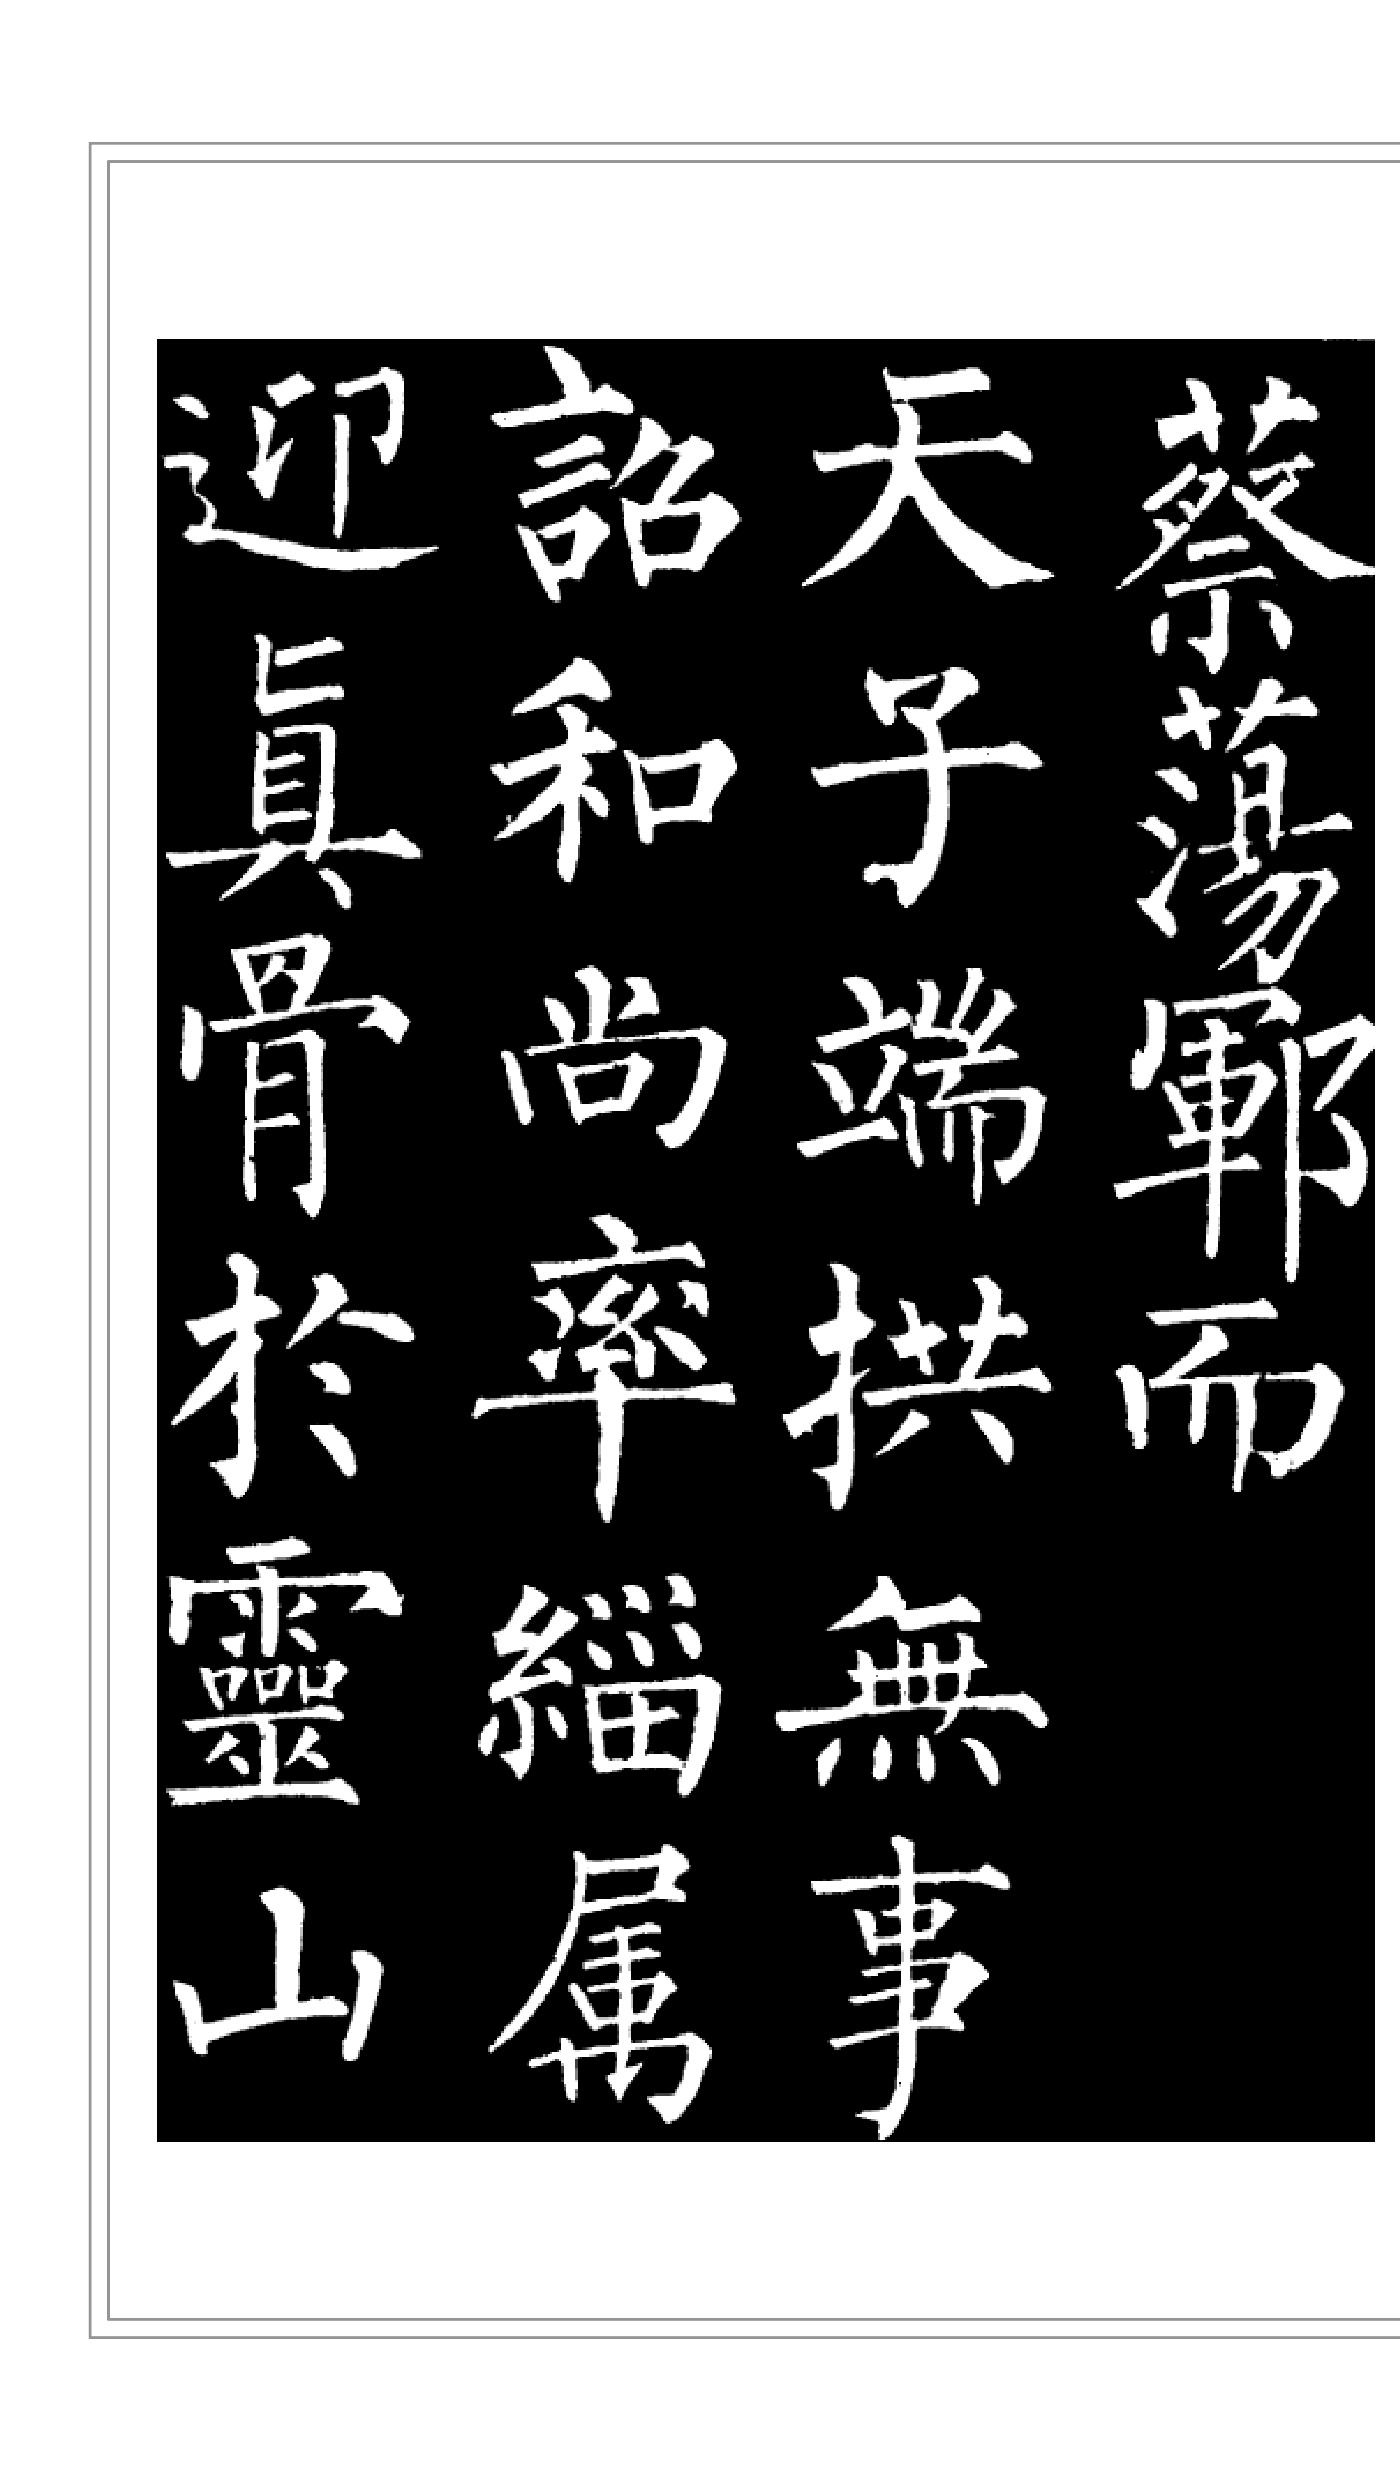 蔡蕩鄆而
天子端拱無事
詔和尚率緇属
迎眞骨於靈山